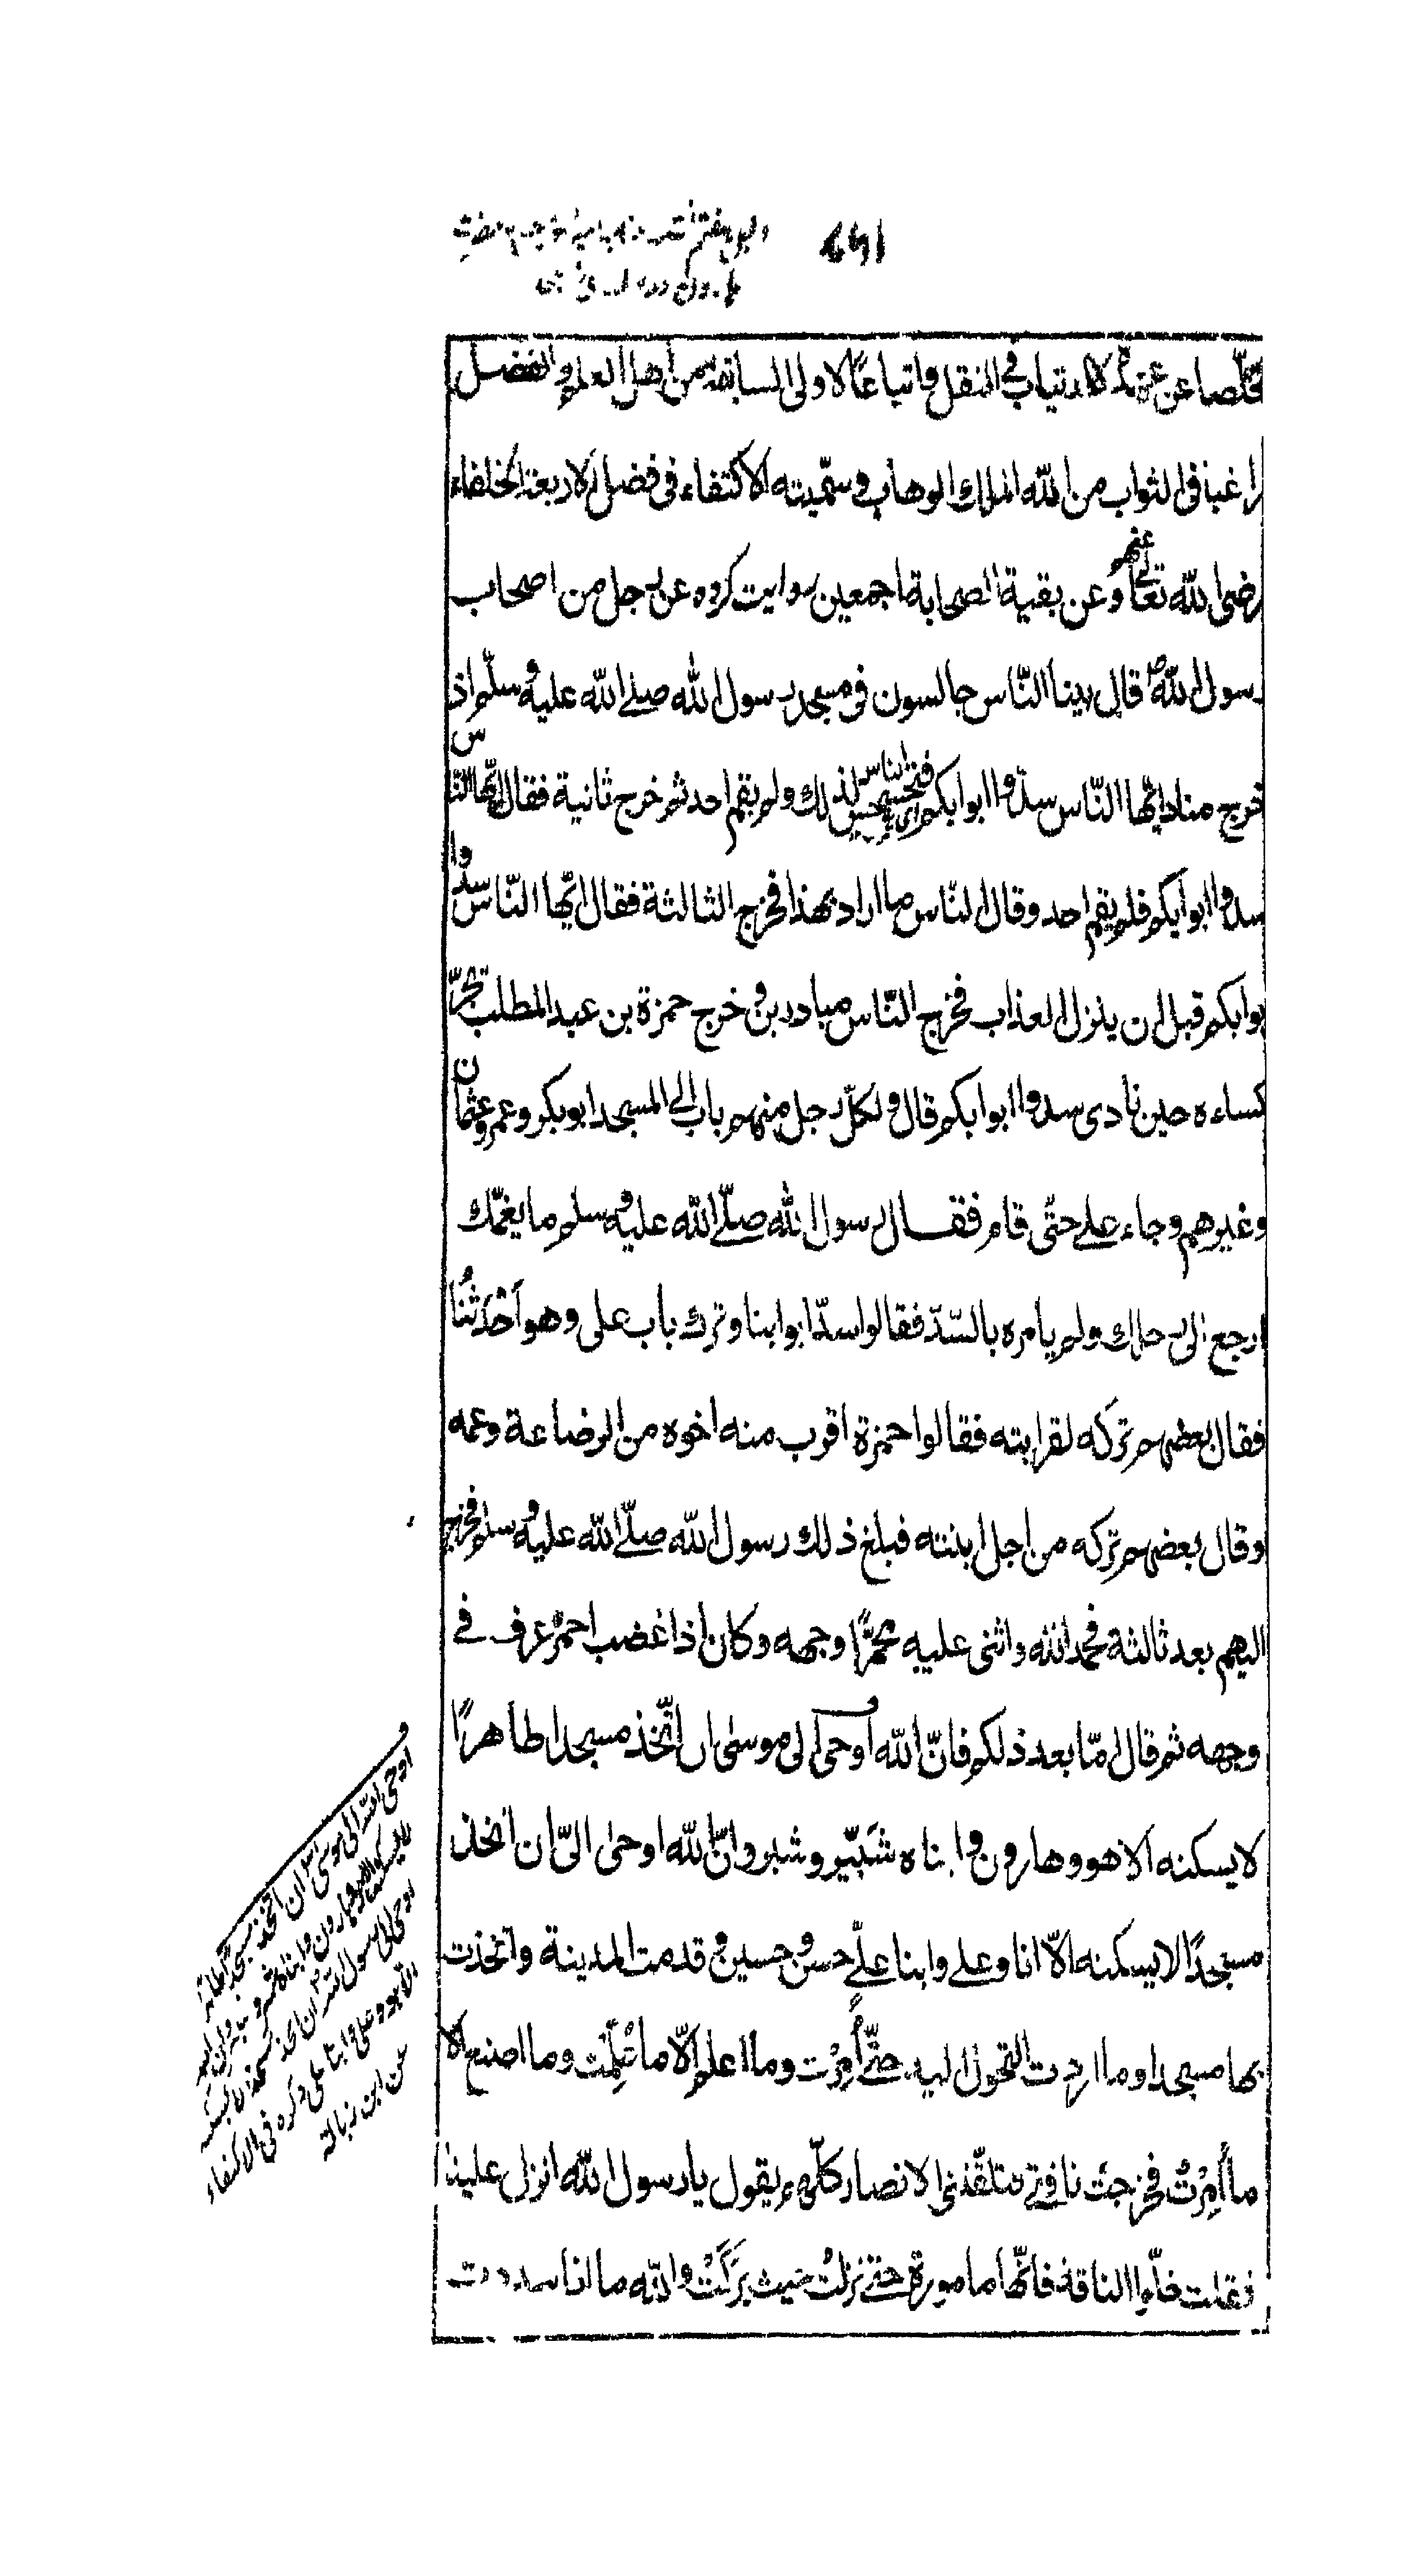 تخلصا عن الارتياب في النقل واتباعا لاولى السابقة من اهل العلم والفضل
راغبا في الثواب من الله الملك الوهاب وسمّيته الاكتفاء في فضل الاربعة الخلفاء
رضى الله تعالى عنهم وعن بقية الصحابة اجمعين روايت كرده عن رجل من اصحاب
رسول الله ص قال بينا النّاس جالسون في مسجد رسول الله صلى الله عليه وسلّم اذ
خرج مناد ايّها النّاس سدّوا ابوابكم فتحسحس الناس لذلك ولم يقم احد ثم خرج ثانية فقال ايّها النّاس
سدوا ابوابكم فلم يقم احد وقال النّاس ما اراد بهذا فخرج الثالثة فقال ايّها النّاس سدّوا
ابوابكم قبل ان ينزل العذاب فخرج النّاس مبادرين وخرج حمزة بن عبد المطلب يجرّ
كساءه حين نادى سدوا ابوابكم قال ولكلّ رجل منهم باب الى المسجد ابو بكر وعمر وعثمان
وغيرهم وجاء على حتّى قام فقال رسول الله صلّى الله عليه وسلم ما يغمّك
ارجع الى رحلك ولم يامره بالسّدّ فقالوا سدّ ابوابنا وترك باب على وهو اَحْدَثُنا
فقال بعضهم تركه لقرابته فقالوا حمزة اقرب منه اخوه من الرضاعة وعمه
وقال بعضهم تركه من اجل ابنته فبلغ ذلك رسول الله صلّى الله عليه وسلم فخرج
اليهم بعد ثالثة فحمد الله واثنى عليه محمرًّا وجهه وكان اذا غضب احمرّ عرف في
وجهه ثم قال امّا بعد ذلكم فانّ الله اوحى الى موسى ان اتّخذ مسجدا طاهرًا
لا يسكنه الا هو وهارون وابناه شَبّير وشبر وانّ الله اوحى الىّ ان اتخذ
مسجدًا لا يسكنه الاّ انا وعلى وابنا علىّ حسن وحسين وقد قدمت المدينة واتخذت
بها مسجدا وما اردت التحول اليه حتّى اُمِرْت وما اعلم الاّ ما عُلِّمْت وما اصنع الا
ما اُمِرْتُ فخرجت ناقتى فتلقّتنى الانصار كلّهم يقول يا رسول الله انزل علينا
فقلت خلّوا الناقة فانّها مامورة حتى نزلتُ حيث بَرَكَتْ والله ما انا سددت
اوحى الله الى موسى ان اتخذ مسجدا طاهرا
لا يسكنه الا هارون وابناه
اوحى الى رسول الله ان اتخذ مسجدا
الا هو وعلى وابنا على ذكره في الاكتفاء
عن ابن زبالة